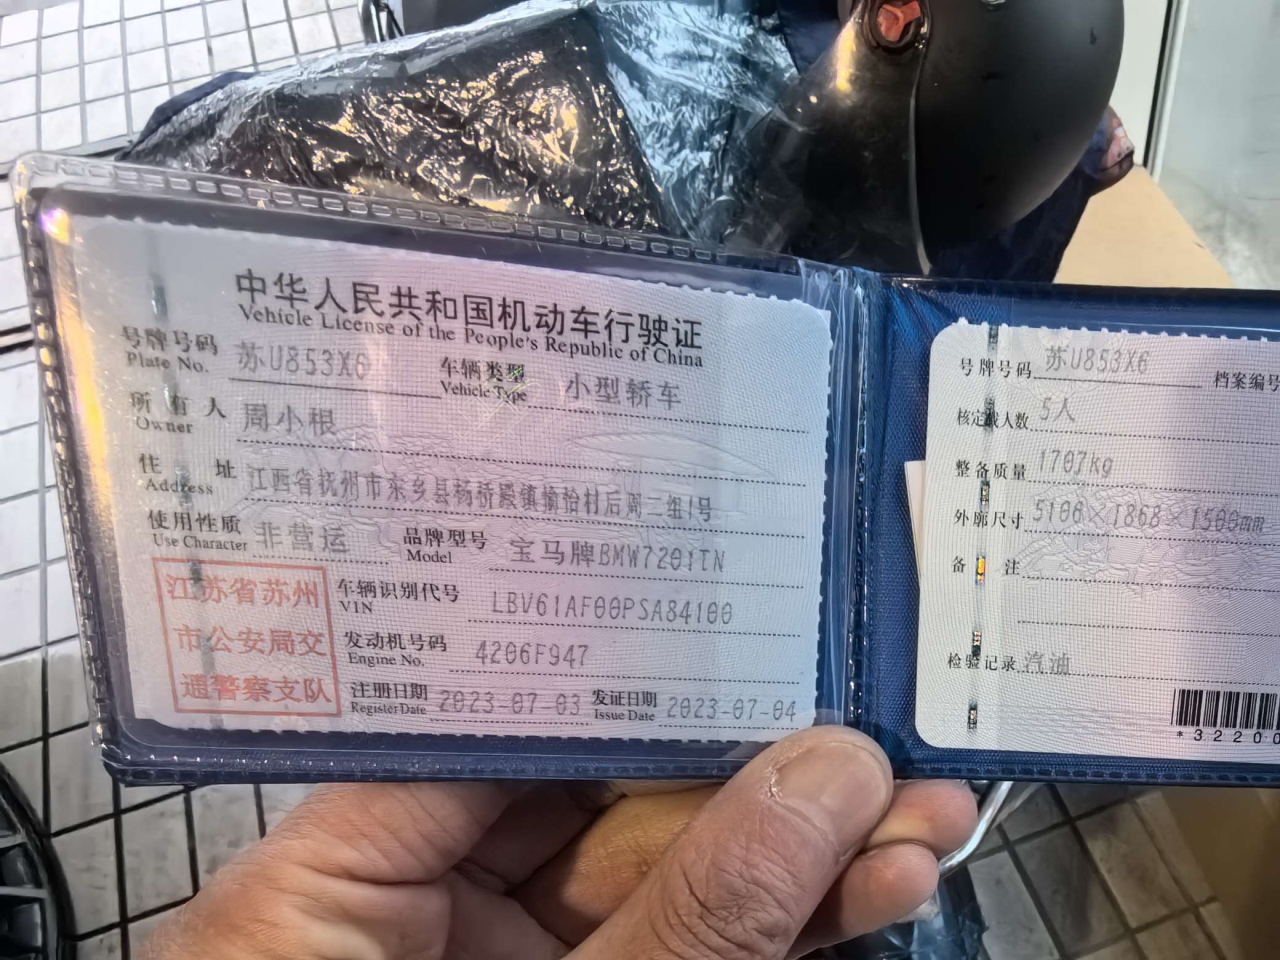 中华人民共和国机动车行驶证
Vehicle License of the People's Republic of China
号牌号码 苏U853X6 车辆类型 小型轿车
Plate No. Vehicle Type
所有人 周小根
Owner
住址 江西省抚州市东乡县杨桥殿镇愉怡村后周二组1号
Address
使用性质 非营运 品牌型号 宝马牌BMW7201TN
Use Character Model
江苏省苏州
市公安局交
通警察支队
车辆识别代号 LBV61AF00PSA84100
VIN
发动机号码 4206F947
Engine No.
注册日期 2023-07-03 发证日期 2023-07-04
Register Date Issue Date
号牌号码 苏U853X6 档案编号
核定载人数 5人
整备质量 1707kg
外廓尺寸 5106×1868×1500mm
备注
检验记录 汽油
*32200